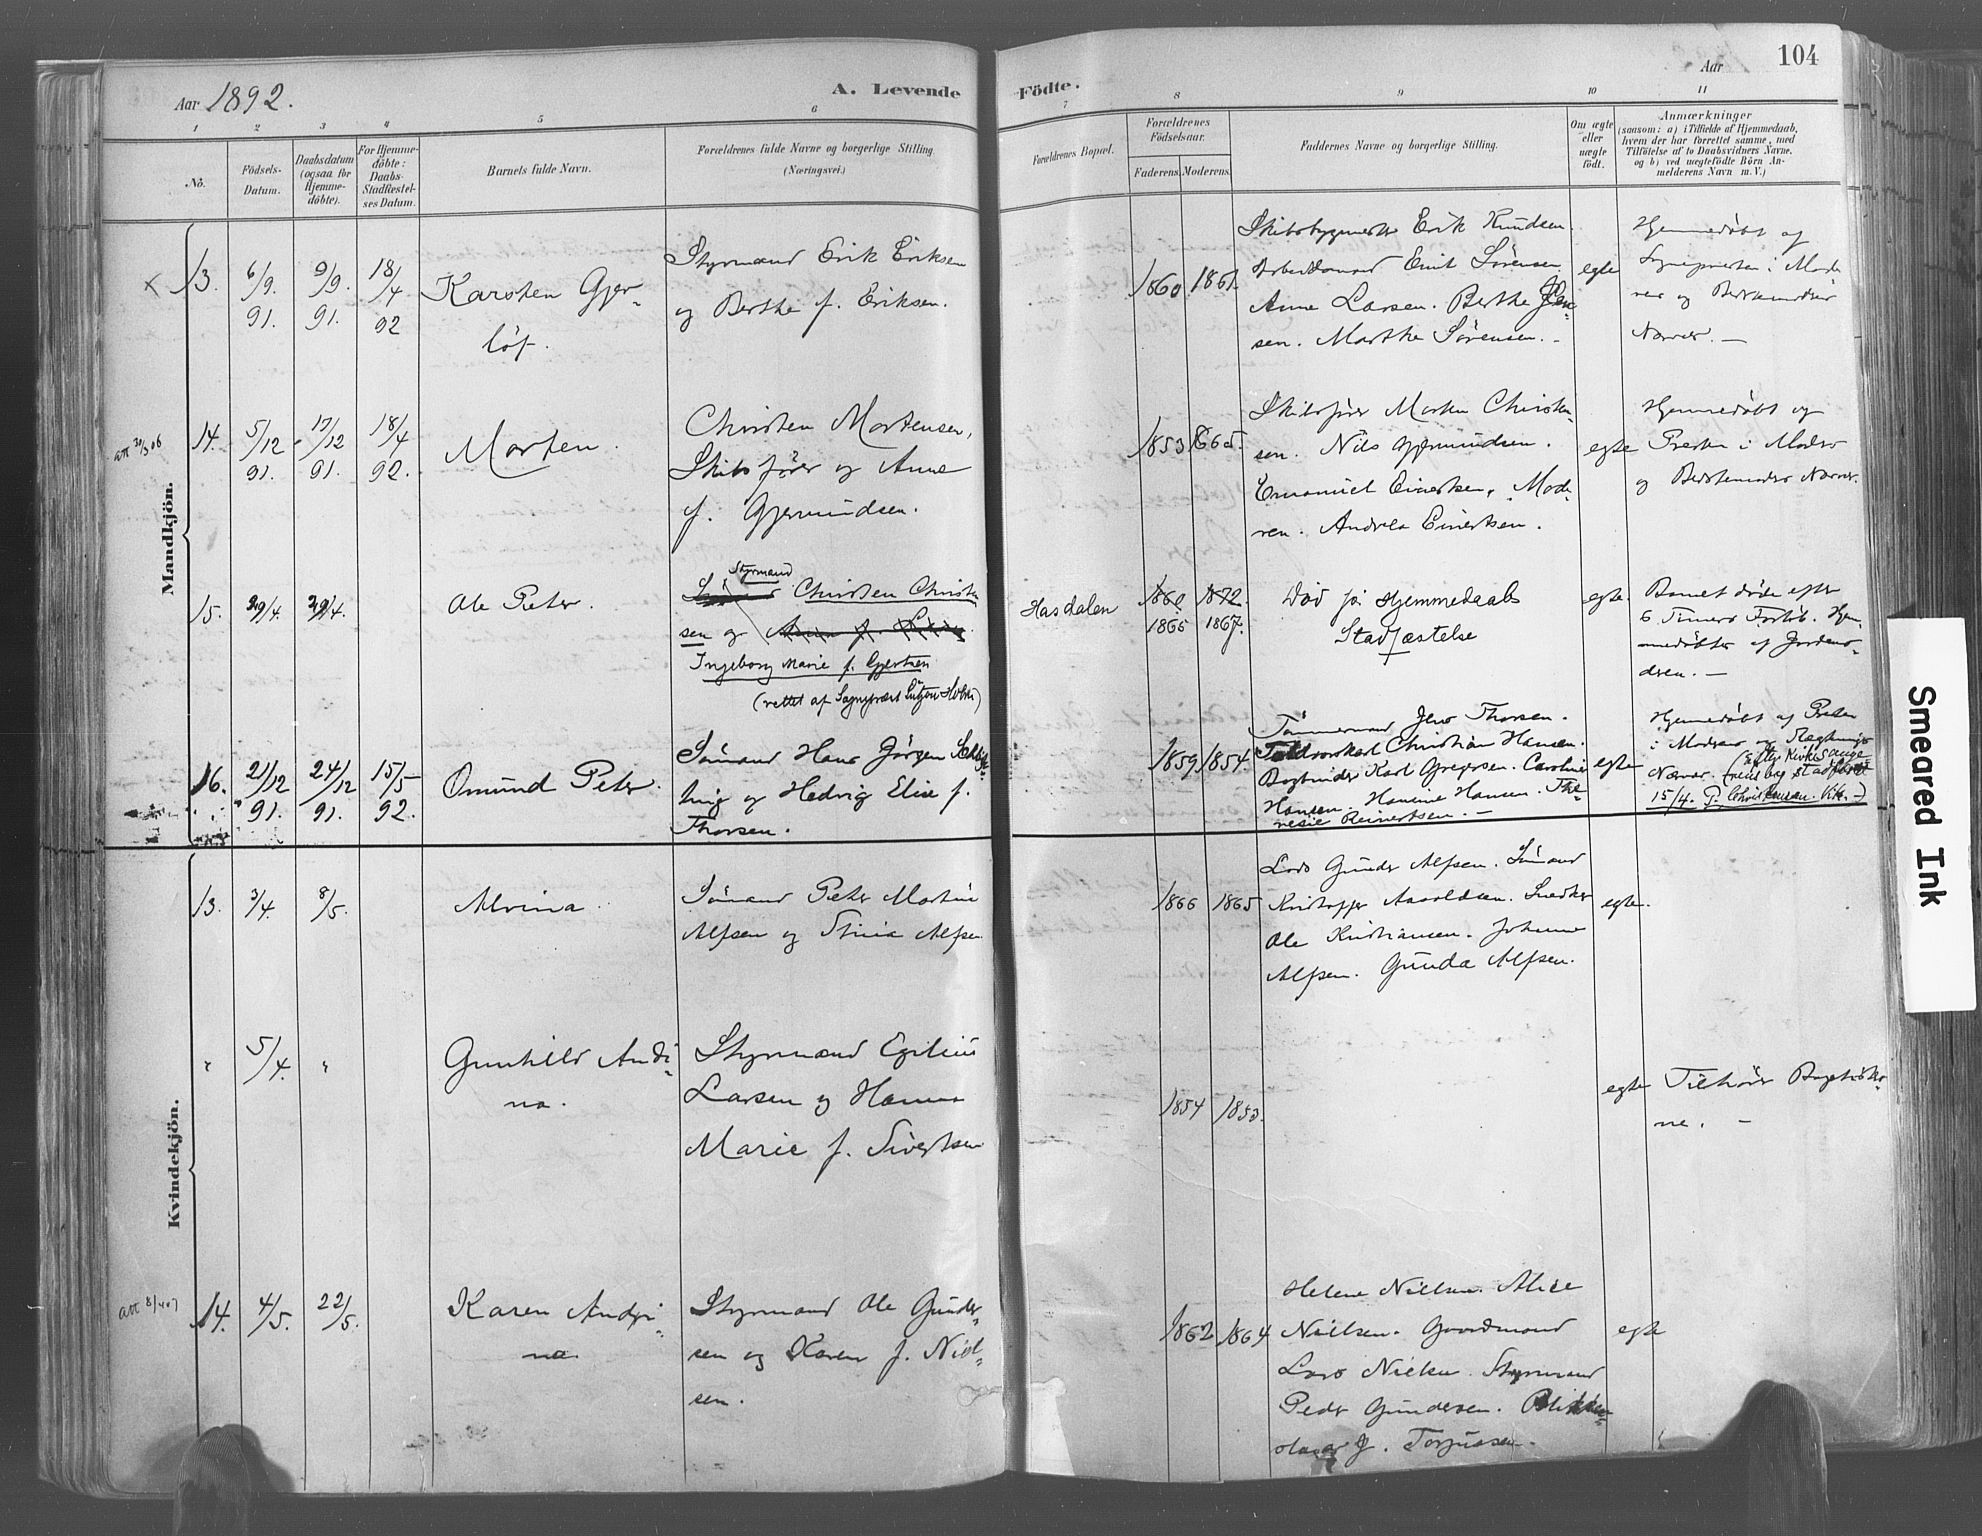 104
Aar 1892.
A. Levende
Födte.
Aar
1 2 3 4 5 6
7 8 9 10 11
No.
Födsels-
Datum.
Daabsdatum
(ogsaa for
Hjemme-
döbte).
For Hjemme-
döbte:
Daabs-
Stadfæstel-
ses Datum.
Barnets fulde Navn.
Forældrenes fulde Navne og borgerlige Stilling.
(Næringsvei.)
Forældrenes Bopæl.
Forældrenes
Födselsaar.
Faderens. Moderens.
Faddernes Navne og borgerlig Stilling.
Om ægte
eller
uægte
födt.
Anmærkninger
(saasom: a) i Tilfælde af Hjemmedaab,
hvem der har forrettet samme, med
Tilföielse af to Daabsvidners Navne.
og b) ved uægtefödte Börn An-
melderens Navn m. V.)
Mandkjön.
13. 6/9. 91. 9/9. 91. 18/4 92
Karsten Gjer-
löf.
Styrmand Erik Eriksen
og Berthe f. Eriksen.
1860 1861
Skibsbygmester Erik Knudsen.
Arbeidsmand Emil Sörensen
Anne Larsen. Berthe
sen. Marthe Sörensen. -
egte
Hjemmedöbt af
Sognepresten i Mode
rens og Bestemoders
Nærvær. —
att 30/3 06
14. 5/12 91. 17/12 91. 18/4 92.
Morten.
Christen Mortensen,
Skibsförer og Anne
f. Gjermundsen.
1853 1865.
Skibsförer Morten Christen-
sen. Nils Gjermundsen.
Emanuel Einertsen, Mode-
ren. Andrea Einertsen.
egte
Hjemmedöbt og
Presten i Moders
og Bestemoders Nærvær.
15. 29/4. 29/4.
Ole Peter.
Styrmand
Christen Christen
sen og
Ingeborg Marie f. Gjertsen
(rettet af Sogneprest Lützow Holm)
Hasdalen
1860 1872.
1865 1867.
Död för Hjemmedaabs
Stadfæstelse
egte.
Barnet döde efter
6 Timers Forlöb. Hjem-
medöbtes af Jordmo-
dren. —
16. 21/12 91. 24/12 91. 15/5 92.
Omund Peter.
Sömand Hans Jörgen
og Hedvig Elise f.
Thorsen.
1859 1854
Tömmermand Jens Thorsen.
Christian Hansen.
Bogbinder Karl Gregersen. Caroline
Hansen. Hansine Hansen. The-
resie Reinertsen. —
egte
Hjemmedöbt af Presten
i Moderens og Slegtnings
Nærvær.
15/4. P. Christensen. Vik. -)
Kvindekjön.
13. 3/4. 8/5.
Alvina.
Sömand Peter Martin
Alfsen og Stina Alfsen
1866 1865
Lars Gunder Alfsen. Sömand
Kristoffer Aaroldsen. Snedker
Ole Kristiansen. Johanne
Alfsen. Gunda Alfsen.
egte.
" 5/4. "
Gunhild Andi-
na.
Styrmand Egilius
Larsen og Hanna
Marie f. Sivertsen
1854 1853.
egte
Tilhörer Baptister-
ne. —
att 8/4 07
14. 4/5. 22/5.
Karen Andri-
na
Styrmand Ole Gunder-
sen og Karen f. Niel-
sen.
1862 1864
Helene Nielsen. Alice
Nielsen. Gaardmand
Lars Nielsen. Styrmand
Peder Gundersen. Blikken-
slager J. Torjussen.
egte
Smeared Ink